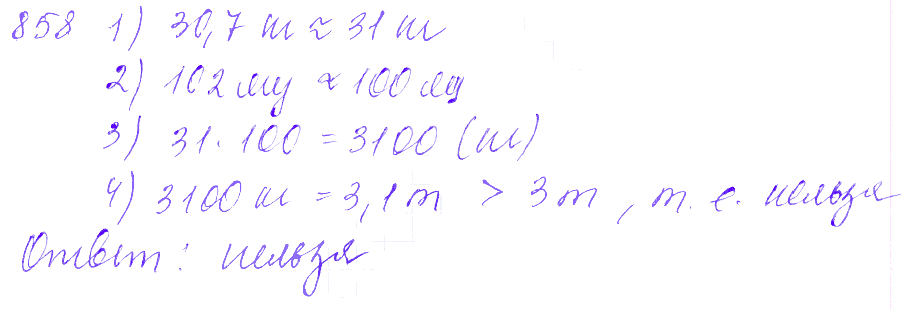 858 1) 30,7 кг ≈ 31 кг
2) 102 ящ ≈ 100 ящ
3) 31 · 100 = 3100 (кг)
4) 3100 кг = 3,1 т > 3 т, т. е. нельзя
Ответ: нельзя